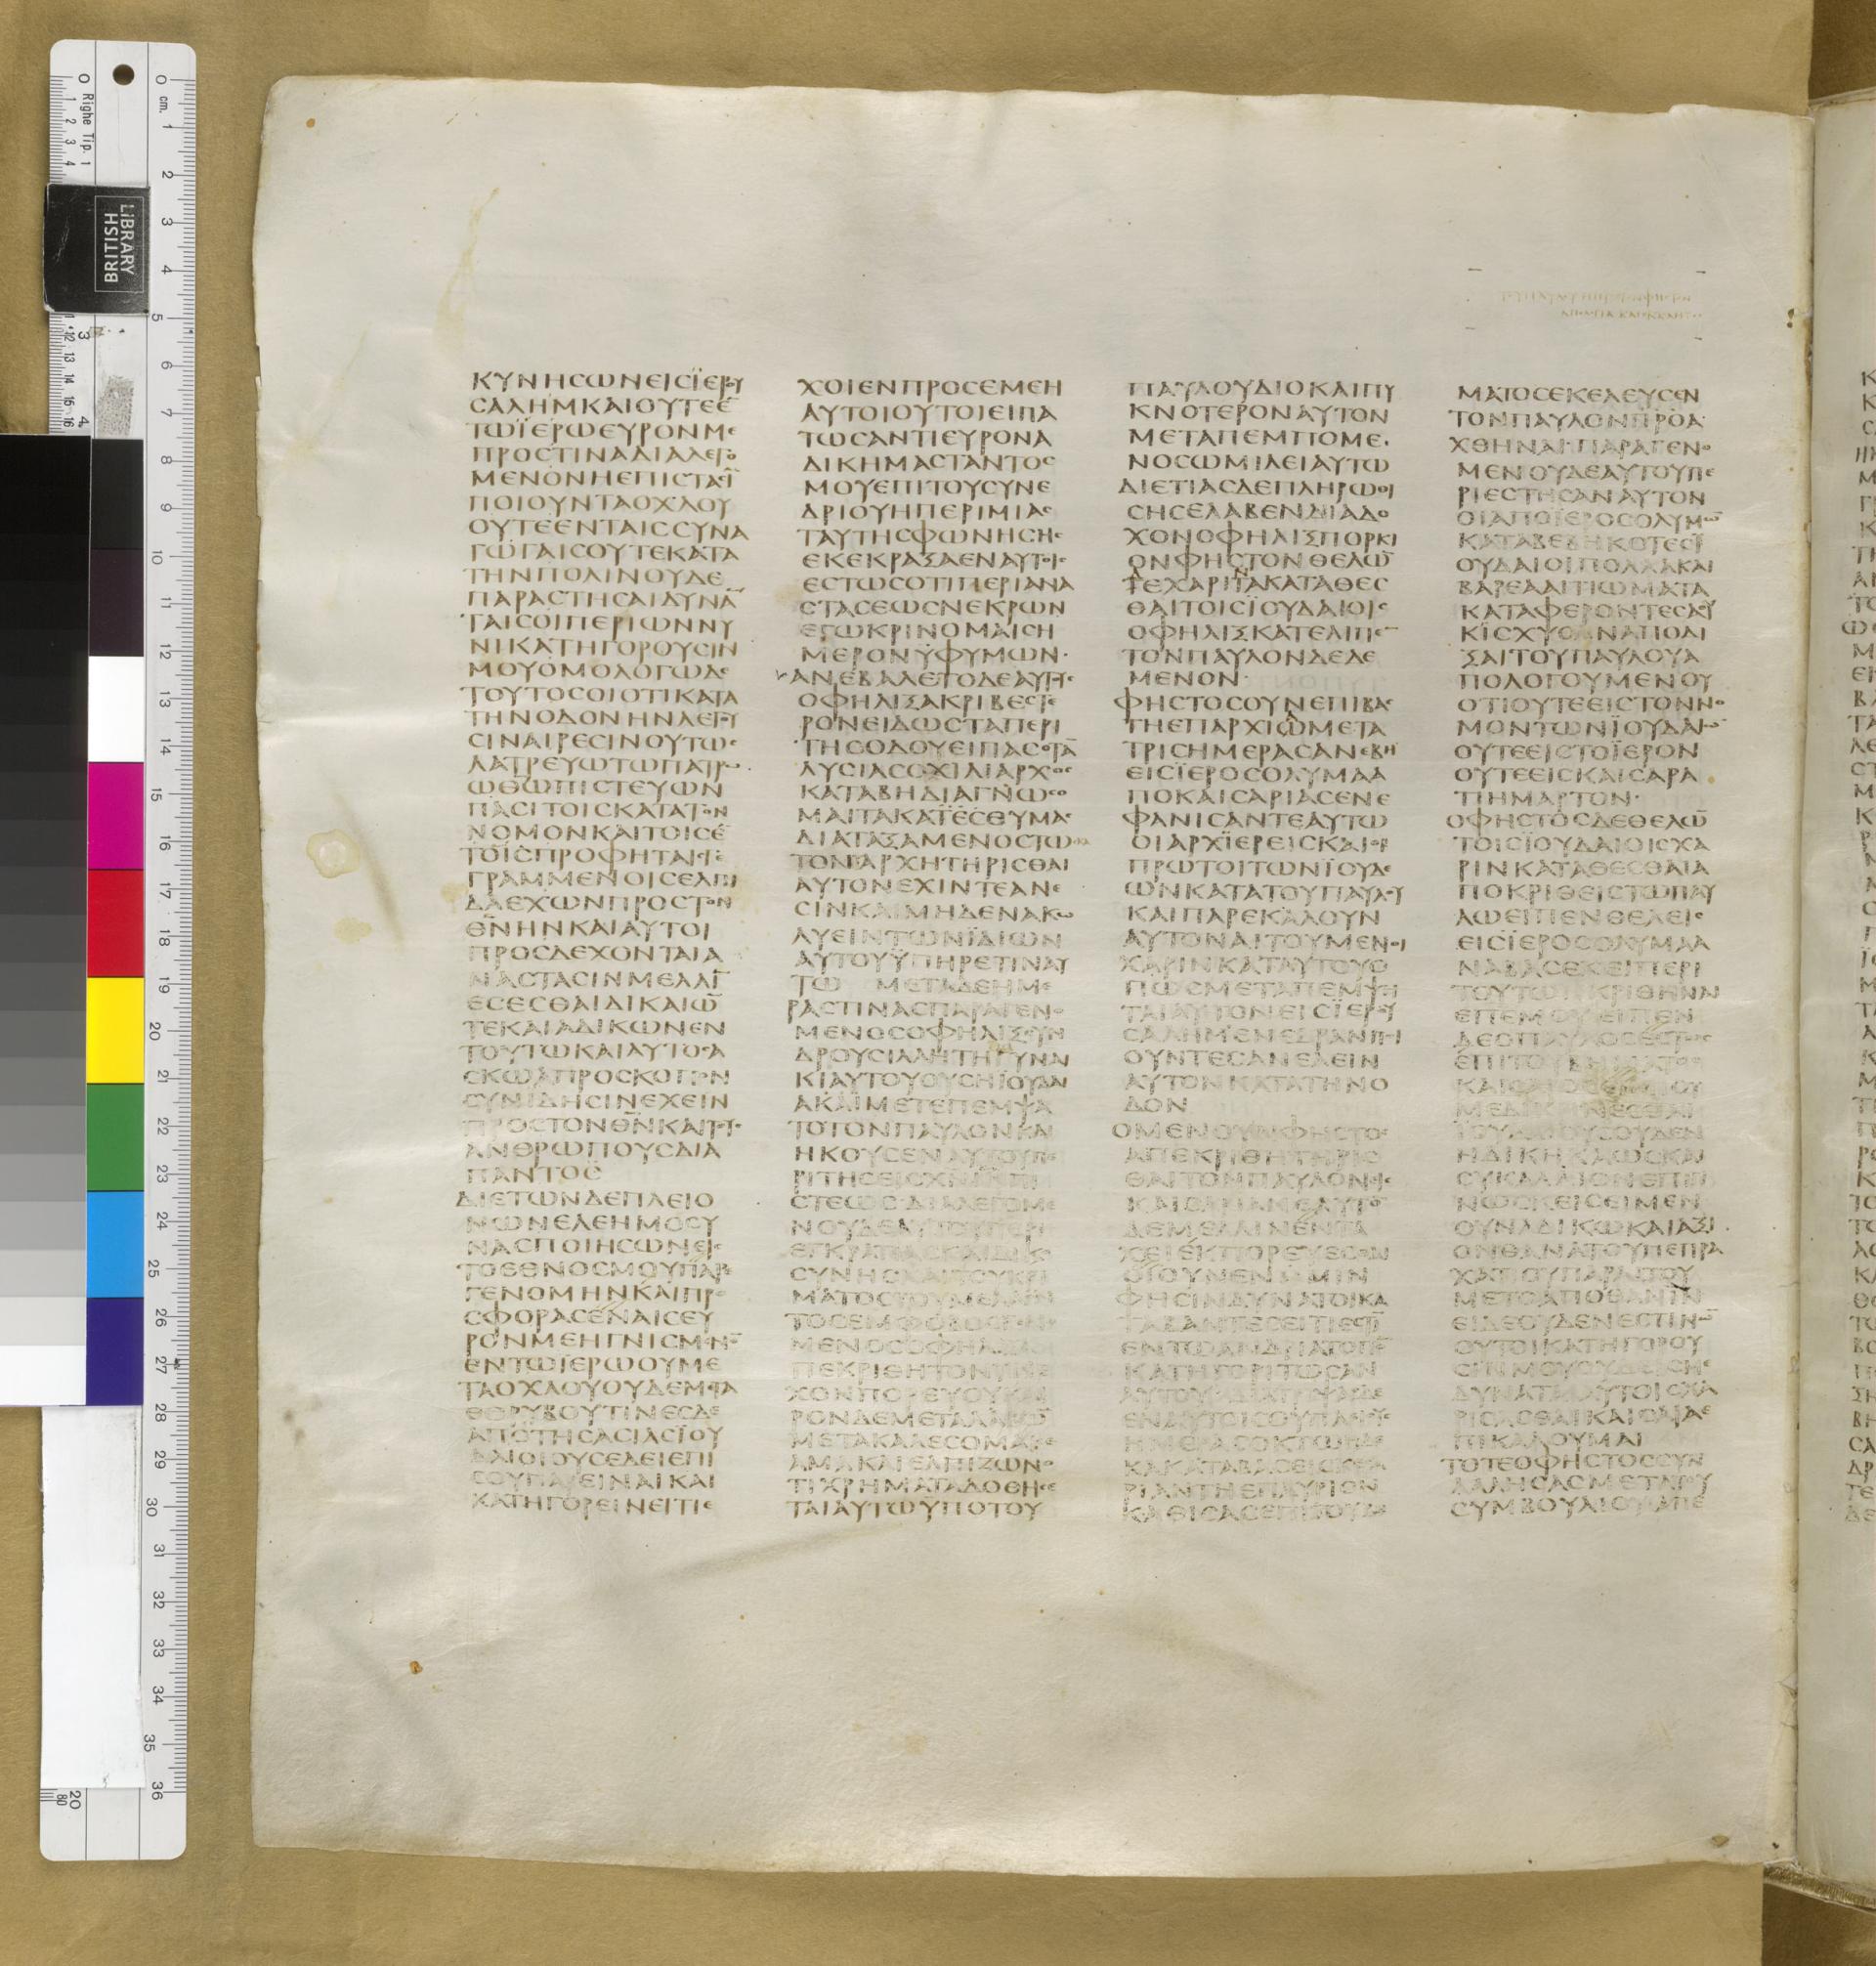 ΚΥΝΗϹΩΝΕΙϹΪΕΡΟΥ
ϹΑΛΗΜΚΑΙΟΥΤΕΕ̄
ΤΩΪΕΡΩΕΥΡΟΝΜΕ
ΠΡΟϹΤΙΝΑΔΙΑΛΕΓΟ
ΜΕΝΟΝΗΕΠΙϹΤΑϹΪ̄
ΠΟΙΟΥΝΤΑΟΧΛΟΥ
ΟΥΤΕΕΝΤΑΙϹϹΥΝΑ
ΓΩΓΑΙϹΟΥΤΕΚΑΤΑ
ΤΗΝΠΟΛΙΝΟΥΔΕ
ΠΑΡΑϹΤΗϹΑΙΔΥΝᾹ
ΤΑΙϹΟΙΠΕΡΙΩΝΝΥ
ΝΙΚΑΤΗΓΟΡΟΥϹΙΝ
ΜΟΥΟΜΟΛΟΓΩΔΕ
ΤΟΥΤΟϹΟΙΟΤΙΚΑΤΑ
ΤΗΝΟΔΟΝΗΝΛΕΓΟΥ
ϹΙΝΑΙΡΕϹΙΝΟΥΤΩϹ
ΛΑΤΡΕΥΩΤΩΠΑΤΡΩ
ΩΘΩΠΙϹΤΕΥΩΝ
ΠΑϹΙΤΟΙϹΚΑΤΑΤΟΝ
ΝΟΜΟΝΚΑΙΤΟΙϹΕ̄
ΤΟΙϹΠΡΟΦΗΤΑΙϹΓΕ
ΓΡΑΜΜΕΝΟΙϹΕΛΠΙ
ΔΑΕΧΩΝΠΡΟϹΤΟΝ
ΘΝ̄ΗΝΚΑΙΑΥΤΟΙ
ΠΡΟϹΔΕΧΟΝΤΑΙΑ
ΝΑϹΤΑϹΙΝΜΕΛΛΪ̄
ΕϹΕϹΘΑΙΔΙΚΑΙΩ̄
ΤΕΚΑΙΑΔΙΚΩΝΕΝ
ΤΟΥΤΩΚΑΙΑΥΤΟϹΑ
ϹΚΩΑΠΡΟϹΚΟΠΟΝ
ϹΥΝΙΔΗϹΙΝΕΧΕΙΝ
ΠΡΟϹΤΟΝΘΝ̄ΚΑΙΤΟΥϹ
ΑΝΘΡΩΠΟΥϹΔΙΑ
ΠΑΝΤΟϹ
ΔΙΕΤΩΝΔΕΠΛΕΙΟ
ΝΩΝΕΛΕΗΜΟϹΥ
ΝΑϹΠΟΙΗϹΩΝΕΙϹ
ΤΟΕΘΝΟϹΜΟΥΠΑΡΕ
ΓΕΝΟΜΗΝΚΑΙΠΡΟ
ϹΦΟΡΑϹΕΝΑΙϹΕΥ
ΡΟΝΜΕΗΓΝΙϹΜΕΝΟ̄
ΕΝΤΩΪΕΡΩΟΥΜΕ
ΤΑΟΧΛΟΥΟΥΔΕΜΕΤΑ
ΘΟΡΥΒΟΥΤΙΝΕϹΔΕ
ΑΠΟΤΗϹΑϹΙΑϹΪΟΥ
ΔΑΙΟΙΟΥϹΕΔΕΙΕΠΙ
ϹΟΥΠΑΡΕΙΝΑΙΚΑΙ
ΚΑΤΗΓΟΡΕΙΝΕΙΤΙΕ
ΧΟΙΕΝΠΡΟϹΕΜΕΗ
ΑΥΤΟΙΟΥΤΟΙΕΙΠΑ
ΤΩϹΑΝΤΙΕΥΡΟΝΑ
ΔΙΚΗΜΑϹΤΑΝΤΟϹ
ΜΟΥΕΠΙΤΟΥϹΥΝΕ
ΔΡΙΟΥΗΠΕΡΙΜΙΑϹ
ΤΑΥΤΗϹΦΩΝΗϹΗϹ
ΕΚΕΚΡΑΞΑΕΝΑΥΤΟΙϹ
ΕϹΤΩϹΟΤΙΠΕΡΙΑΝΑ
ϹΤΑϹΕΩϹΝΕΚΡΩΝ
ΕΓΩΚΡΙΝΟΜΑΙϹΗ
ΜΕΡΟΝΫΦΥΜΩΝ·
ΑΝΕΒΑΛΕΤΟΔΕΑΥΤΟΥϹ
ΟΦΗΛΙΞΑΚΡΙΒΕϹΤΕ
ΡΟΝΕΙΔΩϹΤΑΠΕΡΙ
ΤΗϹΟΔΟΥΕΙΠΑϹΟΤᾹ
ΛΥϹΙΑϹΟΧΙΛΙΑΡΧΟϹ
ΚΑΤΑΒΗΔΙΑΓΝΩϹΟ
ΜΑΙΤΑΚΑΤΕϹΘΥΜΑϹ
ΔΙΑΤΑΞΑΜΕΝΟϹΤΩ
ΤΟΝΤΑΡΧΗΤΗΡΙϹΘΑΙ
ΑΥΤΟΝΕΧΙΝΤΕΑΝΕ
ϹΙΝΚΑΙΜΗΔΕΝΑΚΩ
ΛΥΕΙΝΤΩΝΪΔΙΩΝ
ΑΥΤΟΥΫΠΗΡΕΤΙΝΑΥ
ΤΩ ΜΕΤΑΔΕΗΜΕ
ΡΑϹΤΙΝΑϹΠΑΡΑΓΕΝΟ
ΜΕΝΟϹΟΦΗΛΙΞϹΥΝ
ΔΡΟΥϹΙΛΛΗΤΗΓΥΝΑΙ
ΚΙΑΥΤΟΥΟΥϹΗΪΟΥΔΑΙ
ΑΚΑΙΜΕΤΕΠΕΜΨΑ
ΤΟΤΟΝΠΑΥΛΟΝΚΑΙ
ΗΚΟΥϹΕΝΑΥΤΟΥΠΕ
ΡΙΤΗϹΕΙϹΧΝΙΝΠΙ
ϹΤΕΩϹ·ΔΙΑΛΕΓΟΜΕ
ΝΟΥΔΕΑΥΤΟΥΠΕΡΙ
ΕΓΚΡΑΤΙΑϹΚΑΙΔΙΚΕΟ
ϹΥΝΗϹΚΑΙΤΟΥΚΡΙ
ΜΑΤΟϹΤΟΥΜΕΛΛΟΝ
ΤΟϹΕΜΦΟΒΟϹΓΕΝΟ
ΜΕΝΟϹΟΦΗΛΙΞΑ
ΠΕΚΡΙΘΗΤΟΝΥΝΕ
ΧΟΝΠΟΡΕΥΟΥΚΑΙ
ΡΟΝΔΕΜΕΤΑΛΑΒΩ̄
ΜΕΤΑΚΑΛΕϹΟΜΑΙϹΕ
ΑΜΑΚΑΙΕΛΠΙΖΩΝΟ
ΤΙΧΡΗΜΑΤΑΔΟΘΗϹΕ
ΤΑΙΑΥΤΩΥΠΟΤΟΥ
ΠΑΥΛΟΥΔΙΟΚΑΙΠΥ
ΚΝΟΤΕΡΟΝΑΥΤΟΝ
ΜΕΤΑΠΕΜΠΟΜΕ
ΝΟϹΩΜΙΛΕΙΑΥΤΩ
ΔΙΕΤΙΑϹΔΕΠΛΗΡΩΘΙ
ϹΗϹΕΛΑΒΕΝΔΙΑΔΟ
ΧΟΝΟΦΗΛΙΞΠΟΡΚΙ
ΟΝΦΗϹΤΟΝΘΕΛΩ̄
ΤΕΧΑΡΙΤΑΚΑΤΑΘΕϹ
ΘΑΙΤΟΙϹΪΟΥΔΑΙΟΙϹ
ΟΦΗΛΙΞΚΑΤΕΛΙΠΕ̄
ΤΟΝΠΑΥΛΟΝΔΕΔΕ
ΜΕΝΟΝ·
ΦΗϹΤΟϹΟΥΝΕΠΙΒΑϹ
ΤΗΕΠΑΡΧΙΩΜΕΤΑ
ΤΡΙϹΗΜΕΡΑϹΑΝΕΒΗ
ΕΙϹΪΕΡΟϹΟΛΥΜΑΑ
ΠΟΚΑΙϹΑΡΙΑϹΕΝΕ
ΦΑΝΙϹΑΝΤΕΑΥΤΩ
ΟΙΑΡΧΪΕΡΕΙϹΚΑΙΟΙ
ΠΡΩΤΟΙΤΩΝΪΟΥΔΕ
ΩΝΚΑΤΑΤΟΥΠΑΥΛΟΥ
ΚΑΙΠΑΡΕΚΑΛΟΥΝ
ΑΥΤΟΝΑΙΤΟΥΜΕΝΟΙ
ΧΑΡΙΝΚΑΤΑΥΤΟΥΟ
ΠΩϹΜΕΤΑΠΕΜΨΗ
ΤΑΙΑΥΤΟΝΕΙϹΪΕΡΟΥ
ϹΑΛΗΜΕΝΕΔΡΑΝΠΟΙ
ΟΥΝΤΕϹΑΝΕΛΕΙΝ
ΑΥΤΟΝΚΑΤΑΤΗΝΟ
ΔΟΝ
ΟΜΕΝΟΥΝΦΗϹΤΟϹ
ΑΠΕΚΡΙΘΗΤΗΡΙϹ
ΘΑΙΤΟΜΠΑΥΛΟΝΕΙϹ
ΚΑΙϹΑΡΙΑΝΕΑΥΤΟ̄
ΔΕΜΕΛΛΙΝΕΝΤΑ
ΧΕΙΕΚΠΟΡΕΥΕϹΘΑΙ
ΟΙΟΥΝΕΝΥΜΙΝ
ΦΗϹΙΝΔΥΝΑΤΟΙΚΑ
ΤΑΒΑΝΤΕϹΕΙΤΙΕϹΤῙ
ΕΝΤΩΑΝΔΡΙΑΤΟΠΟ̄
ΚΑΤΗΓΟΡΙΤΩϹΑΝ
ΑΥΤΟΥ·ΔΙΑΤΡΙΨΑϹΔΕ
ΕΝΑΥΤΟΙϹΟΥΠΛΕΙΟΥϹ
ΗΜΕΡΑϹΟΚΤΩΗΔΕ
ΚΑΚΑΤΑΒΑϹΕΙϹΚΕϹΑ
ΡΙΑΝΤΗΕΠΑΥΡΙΟΝ
ΚΑΘΙϹΑϹΕΠΙΤΟΥΒΗ
ΜΑΤΟϹΕΚΕΛΕΥϹΕΝ
ΤΟΝΠΑΥΛΟΝΠΡΟΑ
ΧΘΗΝΑΙ·ΠΑΡΑΓΕΝΟ
ΜΕΝΟΥΔΕΑΥΤΟΥΠΕ
ΡΙΕϹΤΗϹΑΝΑΥΤΟΝ
ΟΙΑΠΟΪΕΡΟϹΟΛΥΜΩ̄
ΚΑΤΑΒΕΒΗΚΟΤΕϹΪ
ΟΥΔΑΙΟΙΠΟΛΛΑΚΑΙ
ΒΑΡΕΑΑΙΤΙΩΜΑΤΑ
ΚΑΤΑΦΕΡΟΝΤΕϹΑΟΥ
ΚΙϹΧΥΟΝΑΠΟΔΙ
ΞΑΙΤΟΥΠΑΥΛΟΥΑ
ΠΟΛΟΓΟΥΜΕΝΟΥ
ΟΤΙΟΥΤΕΕΙϹΤΟΝΝΟ
ΜΟΝΤΩΝΪΟΥΔΑΙΩ̄
ΟΥΤΕΕΙϹΤΟΪΕΡΟΝ
ΟΥΤΕΕΙϹΚΑΙϹΑΡΑ
ΤΙΗΜΑΡΤΟΝ·
ΟΦΗϹΤΟϹΔΕΘΕΛΩ̄
ΤΟΙϹΪΟΥΔΑΙΟΙϹΧΑ
ΡΙΝΚΑΤΑΘΕϹΘΑΙΑ
ΠΟΚΡΙΘΕΙϹΤΩΠΑΥ
ΛΩΕΙΠΕΝΘΕΛΕΙϹ
ΕΙϹΪΕΡΟϹΟΛΥΜΑΑ
ΝΑΒΑϹΕΚΕΙΠΕΡΙ
ΤΟΥΤΩΝΚΡΙΘΗΝΑΙ
ΕΠΕΜΟΥΕΙΠΕΝ
ΔΕΟΠΑΥΛΟϹΕϹΤΩϹ
ΕΠΙΤΟΥΒΗΜΑΤΟϹ
ΜΕΔΙΚΡΙΝΕϹΘΑΙ
ΪΟΥΔΑΙΟΥϹΟΥΔΕΝ
ΗΔΙΚΗΚΑΩϹΚΑΙ
ϹΥΚΑΛΛΙΟΝΕΠΙΓΙ
ΝΩϹΚΕΙϹΕΙΜΕΝ
ΟΥΝΑΔΙΚΩΚΑΙΑΞΙ
ΟΝΘΑΝΑΤΟΥΠΕΠΡΑ
ΧΑΤΙΟΥΠΑΡΑΙΤΟΥ
ΜΕΤΟΑΠΟΘΑΝΙΝ
ΕΙΔΕΟΥΔΕΝΕϹΤΙΝΩ̄
ΟΥΤΟΙΚΑΤΗΓΟΡΟΥ
ϹΙΝΜΟΥΟΥΔΕΙϹΜΕ
ΔΥΝΑΤΑΙΑΥΤΟΙϹΧΑ
ΡΙϹΑϹΘΑΙΚΑΙϹΑΡΑΕ
ΠΙΚΑΛΟΥΜΑΙ
ΤΟΤΕΟΦΗϹΤΟϹϹΥΝ
ΛΑΛΗϹΑϹΜΕΤΑΤΟΥ
ϹΥΜΒΟΥΛΙΟΥΑΠΕ
LIBRARY
BRITISH